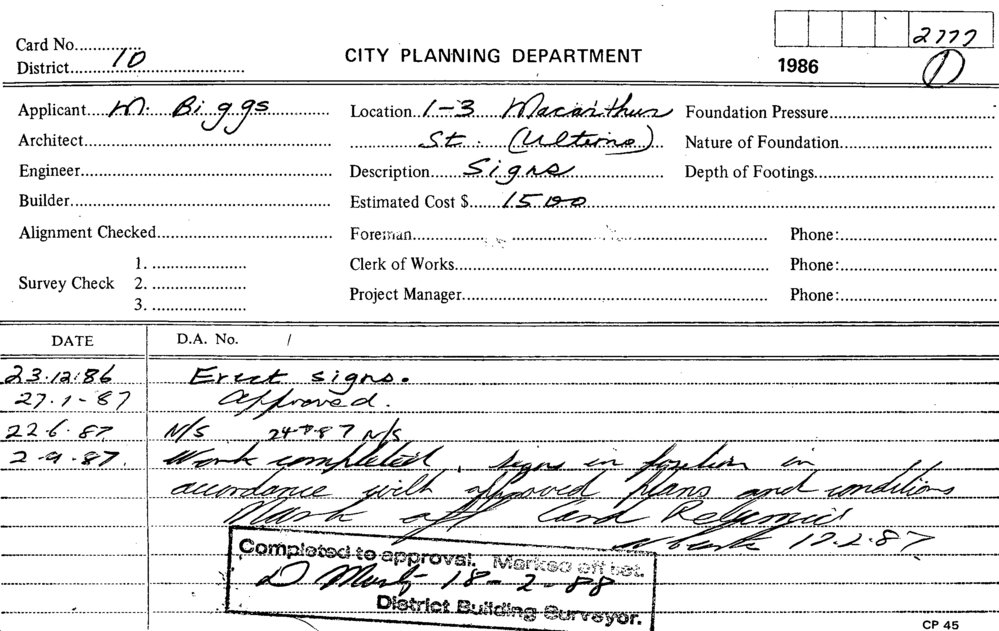 2777
Card No.
District 10
CITY PLANNING DEPARTMENT
1986
1
Applicant M. Biggs
Location 1-3 Macarthur
Foundation Pressure
Architect
St. (Ultimo)
Nature of Foundation
Engineer
Description Signs
Depth of Footings
Builder
Estimated Cost $ 1500
Alignment Checked
Foreman
Phone:
1.
Clerk of Works
Phone:
Survey Check 2.
Project Manager
Phone:
3.
DATE
D.A. No. /
23.12.86 Erect signs.
27.1-87 Approved.
22.6.87 N/S 24787 N/S
2-9-87. Work completed, signs in position in
accordance with approved plans and conditions
Mark off Card
Completed to approval. Marked off
18-2-88
District Building Surveyor.
CP 45